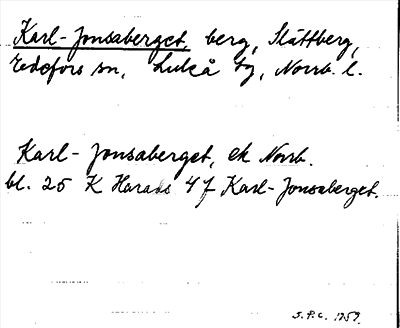 Karl-Jonsaberget, berg, Slättberg,
Edefors sn, Luleå tg, Norrb. l.
Karl-Jonsaberget, ek Norrb.
bl. 25 K Harads 4 f Karl-Jonsaberget.
S.P.C. 1959.